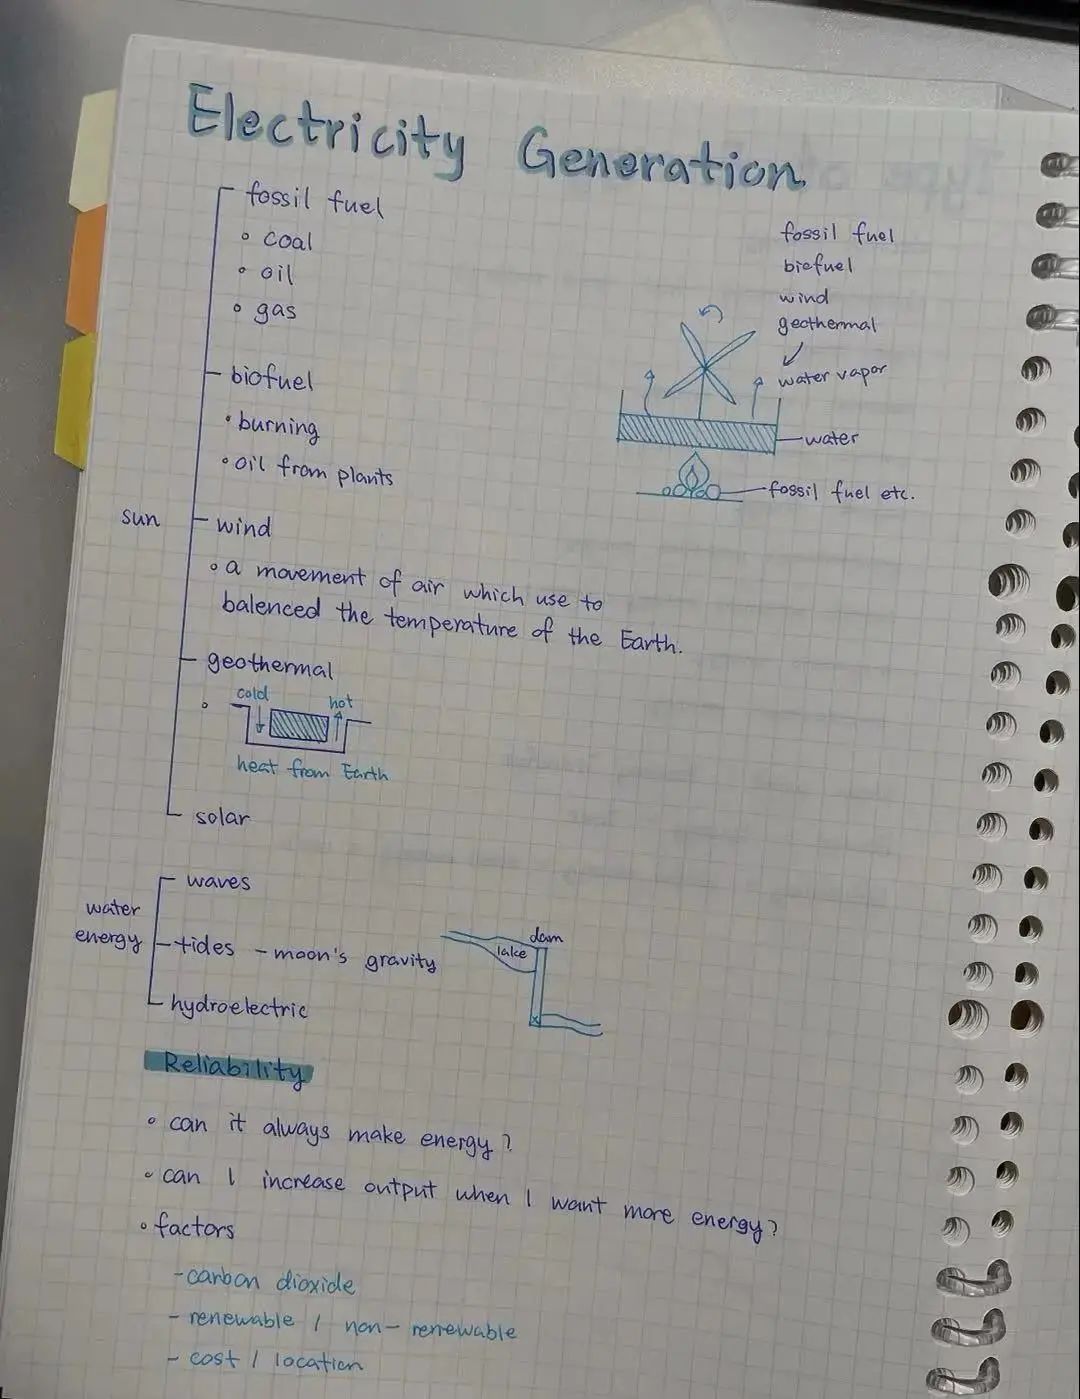 Electricity Generation
fossil fuel
° coal
° oil
° gas
biofuel
• burning
• oil from plants
sun
wind
° a movement of air which use to
balenced the temperature of the Earth.
geothermal
cold
hot
heat from Earth
solar
fossil fuel
biofuel
wind
geothermal
water vapor
water
fossil fuel etc.
water
energy
waves
tides - moon's gravity
hydroelectric
dam
lake
Reliability
° can it always make energy?
° can I increase output when I want more energy?
° factors
- carbon dioxide
- renewable / non-renewable
- cost / location